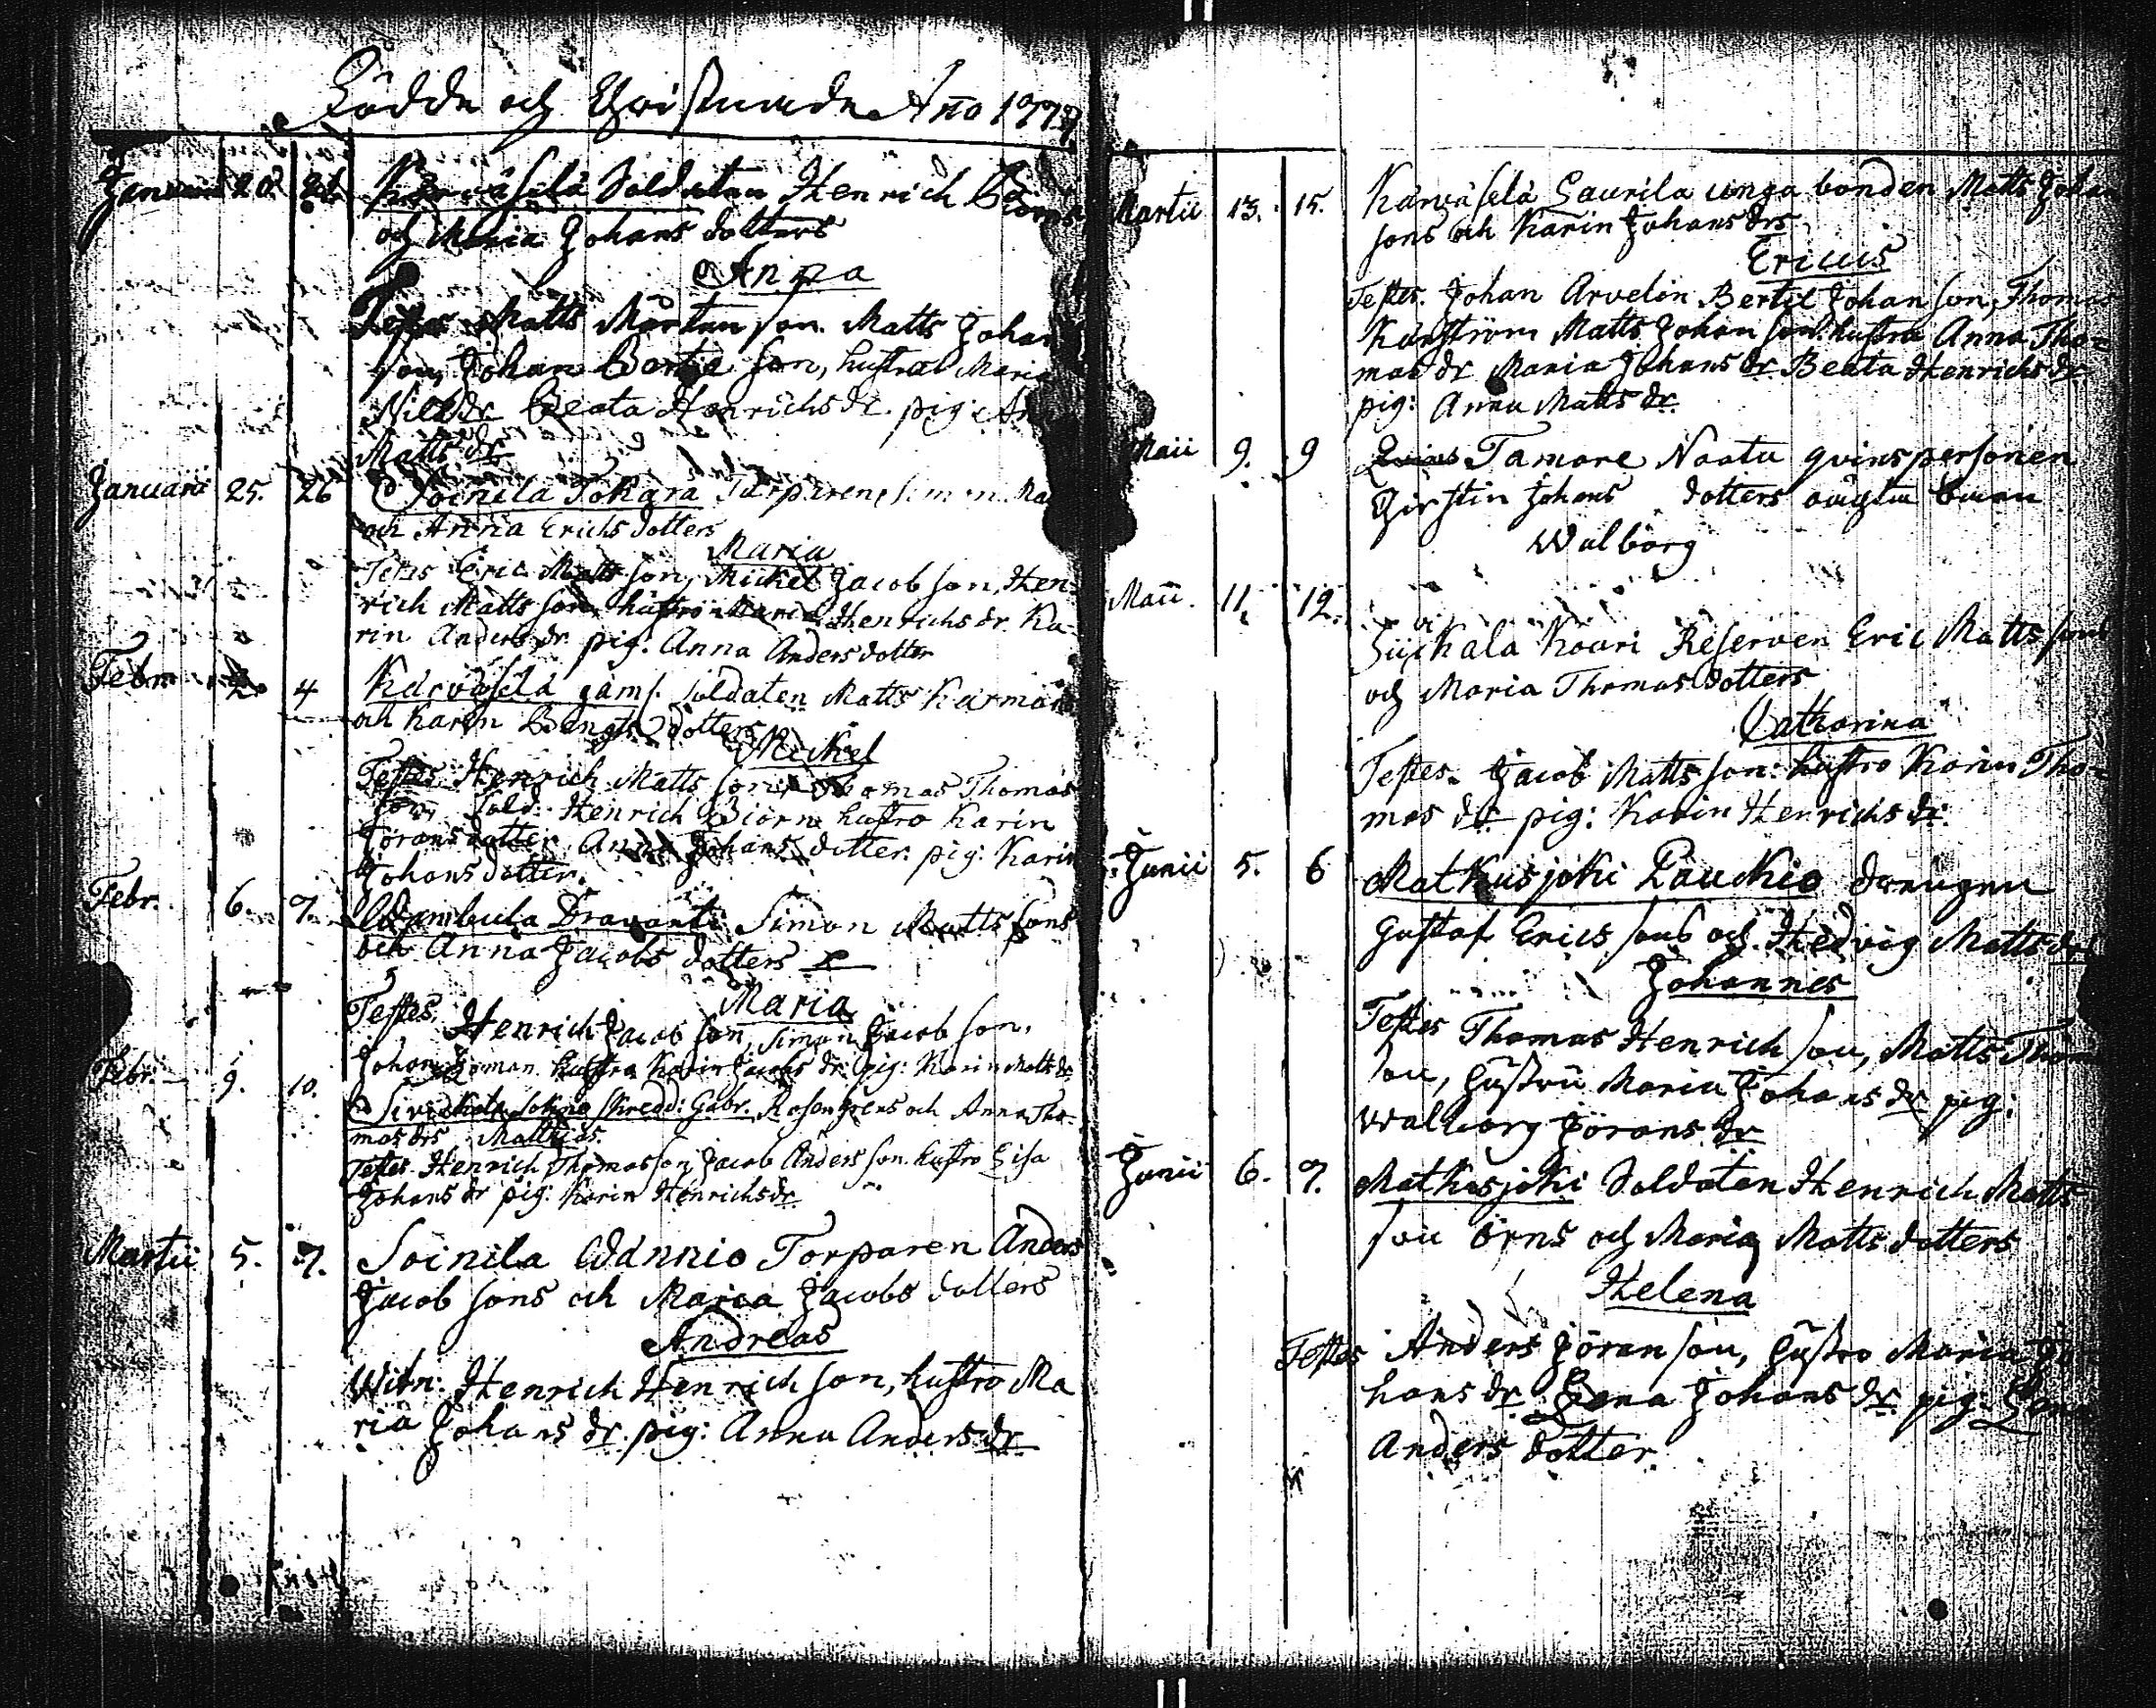 Födde och Christnade Anno 177
Januarii 20. 21. Karvasela Soldaten Henrich Biörns
och Maria Johans dotters
Anna
Testes Matts Mårtenson. Matts Johan
son, Johan Bertil son, hustrur Maria
Nilsdr Beata Henrichs dr. pig: Anna
Matts dr
Januarii 25. 26 Soinila Tokara Torparens Simon Ma
och Anna Erichs dotters
Maria
Testes Eric Mattsson, Mickel Jacobson, Hen-
rich Mattsson. hustro Maria Henrichs dr. Ka-
rin Anders dr. pig: Anna Anders dotter
Febr. 2. 4 Karvasela gaml. soldaten Matts Karmans
och Karin Bengts dotters
Mickel
Testes Henrich Matts son, Thomas Thomas
son, Sold: Henrich Biörn hustro Karin
Görans dotter Anna Johans dotter. pig: Karin
Johans dotter.
Febr. 6. 7. Wambula Dravants Simon Matts sons
och Anna Jacobs dotters
Maria
Testes. Henrich Jacob son, Simon Jacob son,
Johan man. hustro Karin Jacobs dr. pig: Karin Matts dr
Febr. 9. 10. Sirickala skredd: Gabr. Rosengrens och Anna Tho-
mas drs Matthias.
Testes Henrich Thomasson, Jacob Andersson. hustro Lisa
Johans dr pig: Karin Henrichs dr
Martii 5. 7. Soinila Wännio Torparen Anders
Jacob sons och Maria Jacobs dotters
Andreas
Witn: Henrich Henrich son, hustro Ma
ria Johans dr. pig: Anna Anders dr
Martii 13. 15. Karvasela Laurila unga bonden Matts Johan
sons och Karin Johans drs
Ericus
Testes. Johan Arvelin Bertil Johan son, Thomas
Karström Matts Johan son. hustro Anna Tho-
mas dr Maria Johans dr Beata Henrichs dr
pig: Anna Matts dr.
Maii 9. 9 Tamare Naatu qvinspersonen
Kirstin Johans dotters oägta barn
Walborg
Maii. 11. 12. Siickala Kouri Reserven Eric Matts sons
och Maria Thomas dotters
Catharina
Testes. Jacob Matts son: hustro Karin Tho-
mas dr pig: Karin Henrichs dr.
Junii 5. 6 Matkusjoki Lauckio drengen
Gustaf Erics sons och Hedvig Matts dr
Johannes
Testes Thomas Henrich son, Matts Thom
son, hustru Maria Johans dr pig:
Walborg Görans dr
Junii 6. 7. Matkusjoki Soldaten Henrich Matts
son Örns och Maria Matts dotters
Helena
Testes Anders Jöran son, hustro Maria Jo
hans dr Lena Johans dr pig: Lena
Anders dotter.